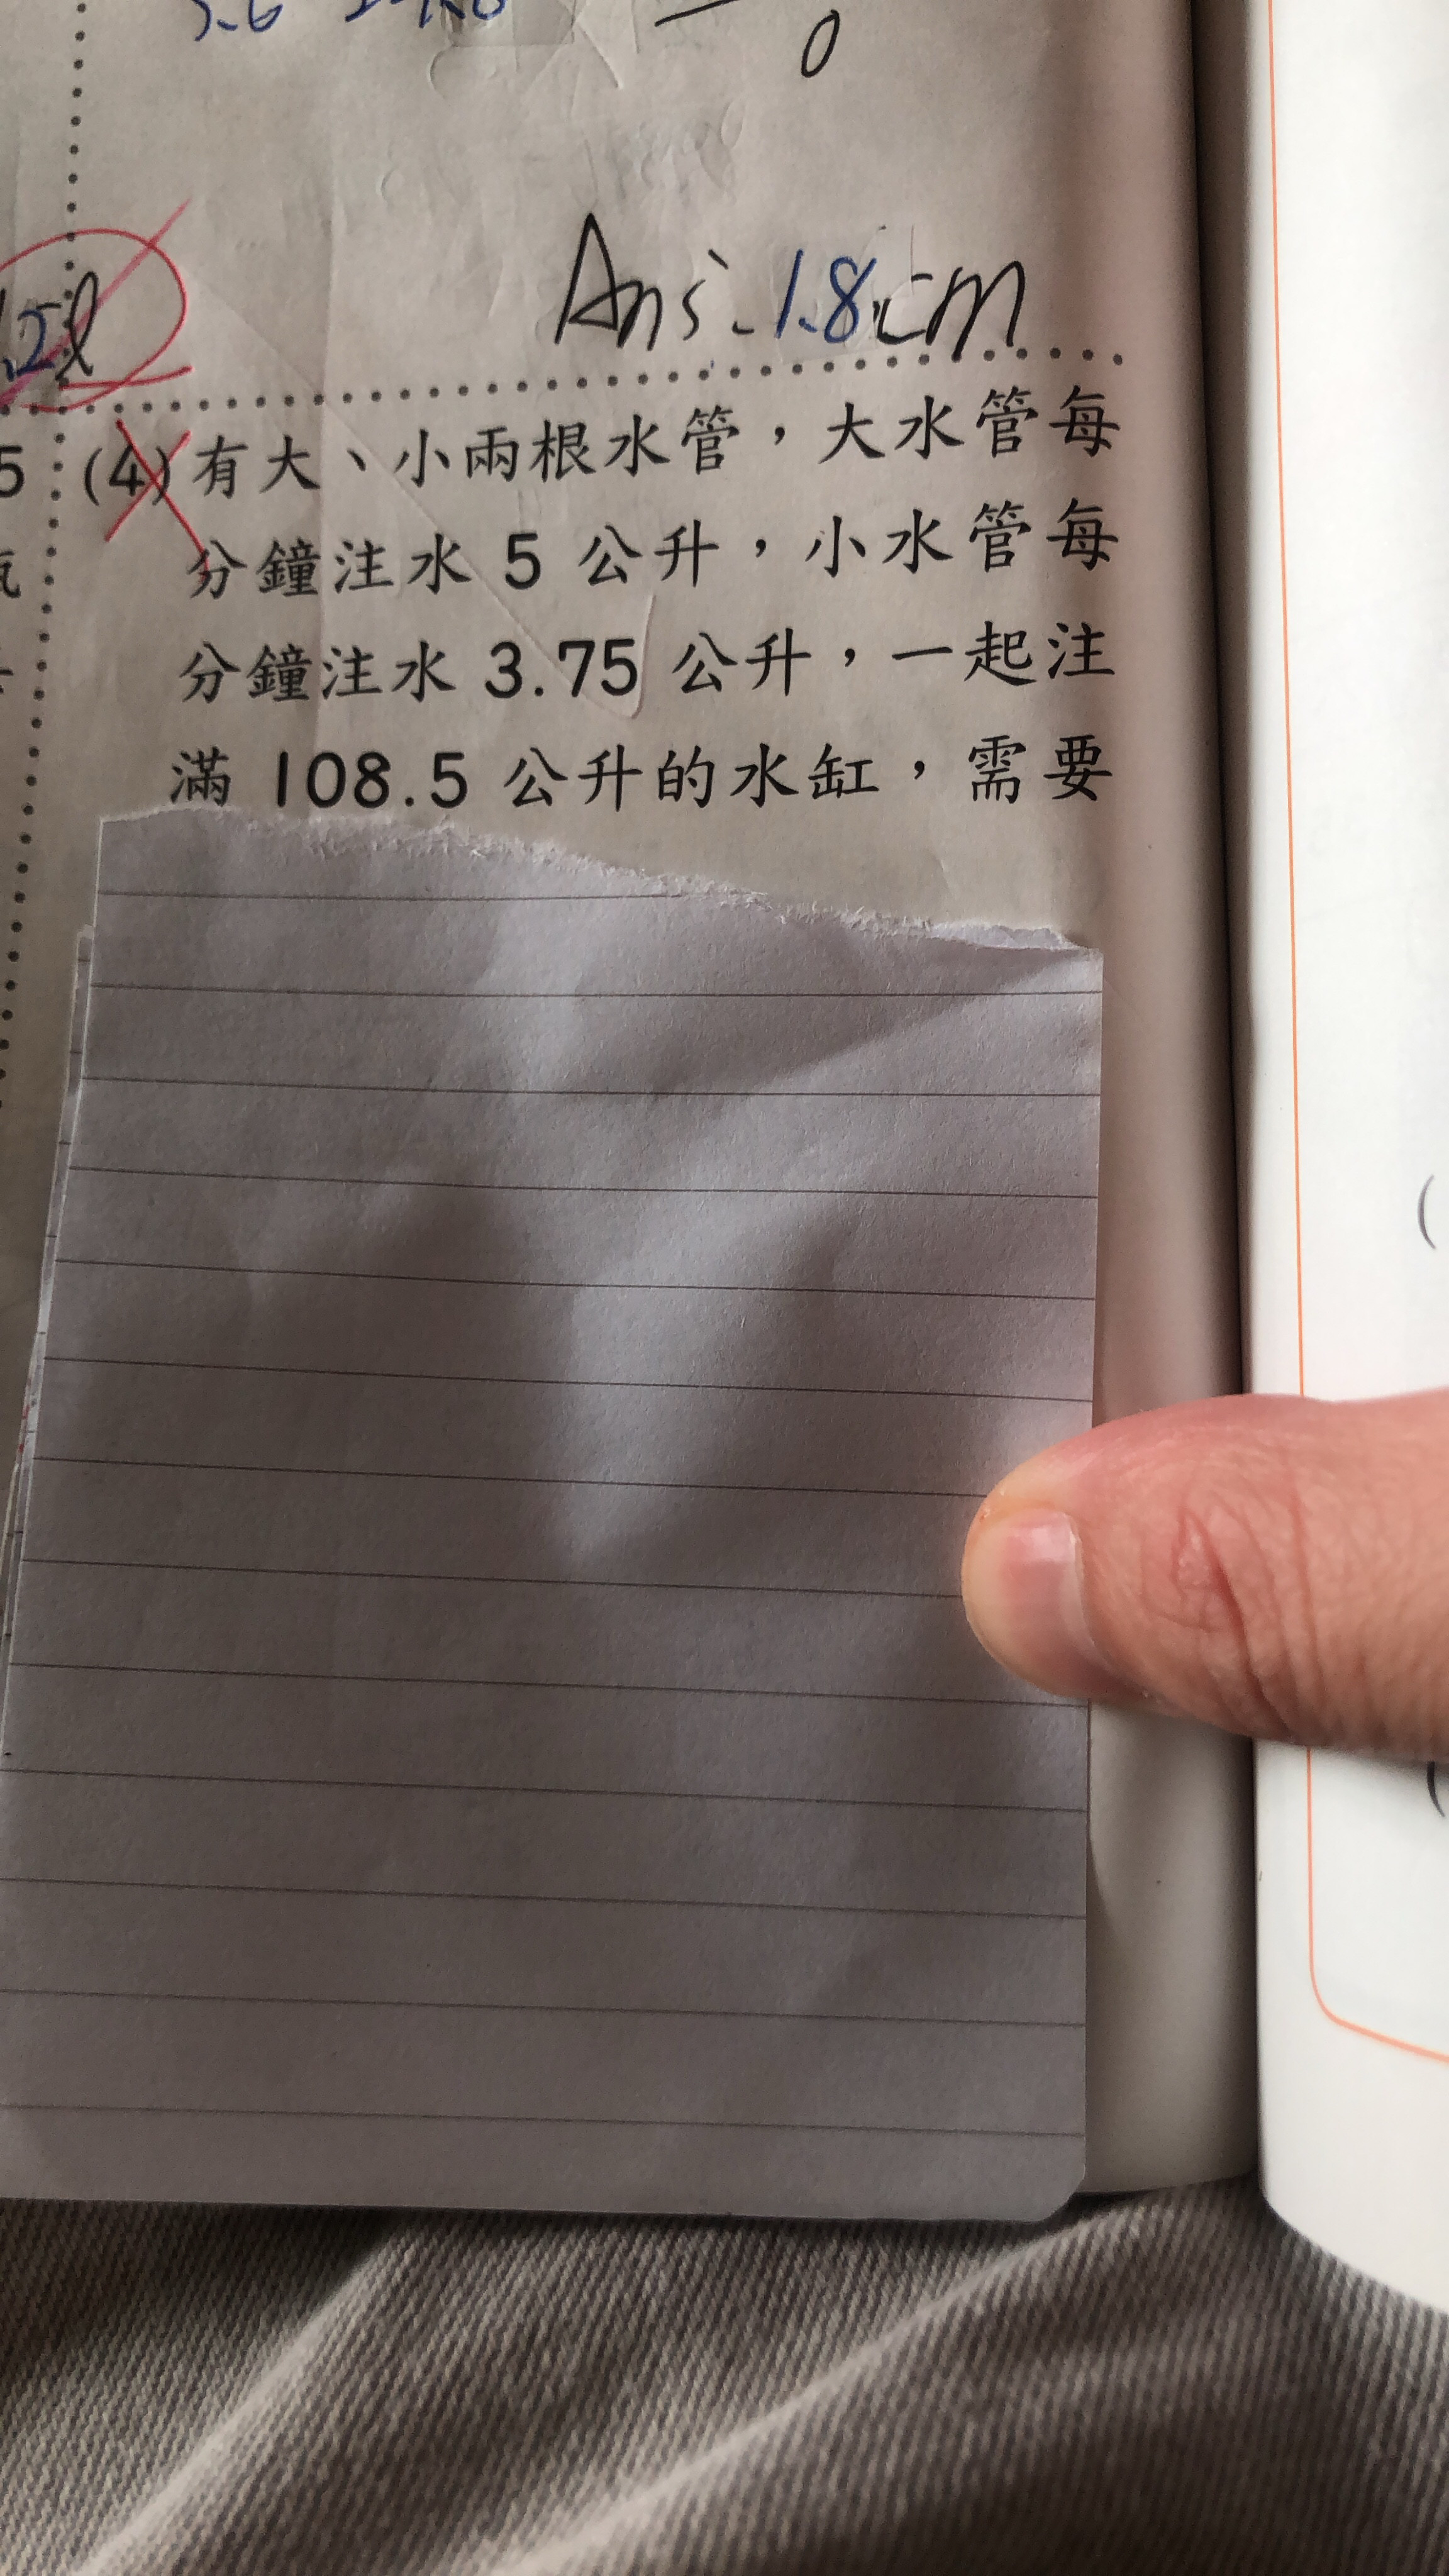 0
Ans: 1.8cm
(4)有大、小兩根水管，大水管每
分鐘注水 5 公升，小水管每
分鐘注水 3.75 公升，一起注
滿 108.5 公升的水缸，需要